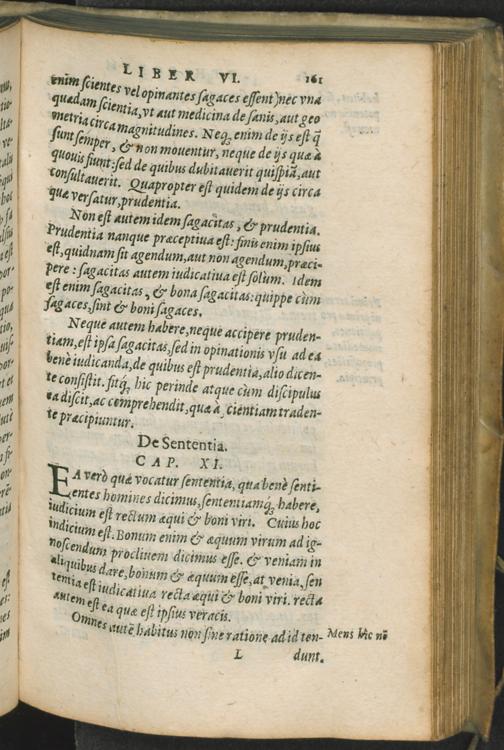 LIBER VI. 161
enim scientes vel opinantes sagaces essent) nec vna
quædam scientia, vt aut medicina de sanis, aut geo
metria circa magnitudines. Neq; enim de ijs est q̃
sunt semper, & non mouentur, neque de ijs quæ à
quouis fiunt: sed de quibus dubitauerit quispiã, aut
consultauerit. Quapropter est quidem de ijs circa
quæ versatur, prudentia.
Non est autem idem sagacitas, & prudentia.
Prudentia nanque præceptiua est: finis enim ipsius
est, quidnam sit agendum, aut non agendum, præci-
pere: sagacitas autem iudicatiua est solùm. Idem
est enim sagacitas, & bona sagacitas: quippe cùm
sagaces, sint & boni sagaces.
Neque autem habere, neque accipere pruden-
tiam, est ipsa sagacitas, sed in opinationis vsu ad ea
benè iudicanda, de quibus est prudentia, alio dicen-
te consistit. fitq́; hic perinde atque cùm discipulus
ea discit, ac comprehendit, quæ à scientiam traden-
te præcipiuntur.
De Sententia.
CAP. XI.
EA verò quæ vocatur sententia, qua benè senti-
entes homines dicimus, sententiamq́; habere,
iudicium est rectum æqui & boni viri. Cuius hoc
indicium est. Bonum enim & æquum virum ad ig-
noscendum procliuem dicimus esse. & veniam in
aliquibus dare, bonum & æquum esse, at venia, sen
tentia est iudicatiua recta æqui & boni viri. recta
autem est ea quæ est ipsius veracis.
Omnes autẽ habitus non sine ratione ad id ten- Mens hîc nõ
L dunt.